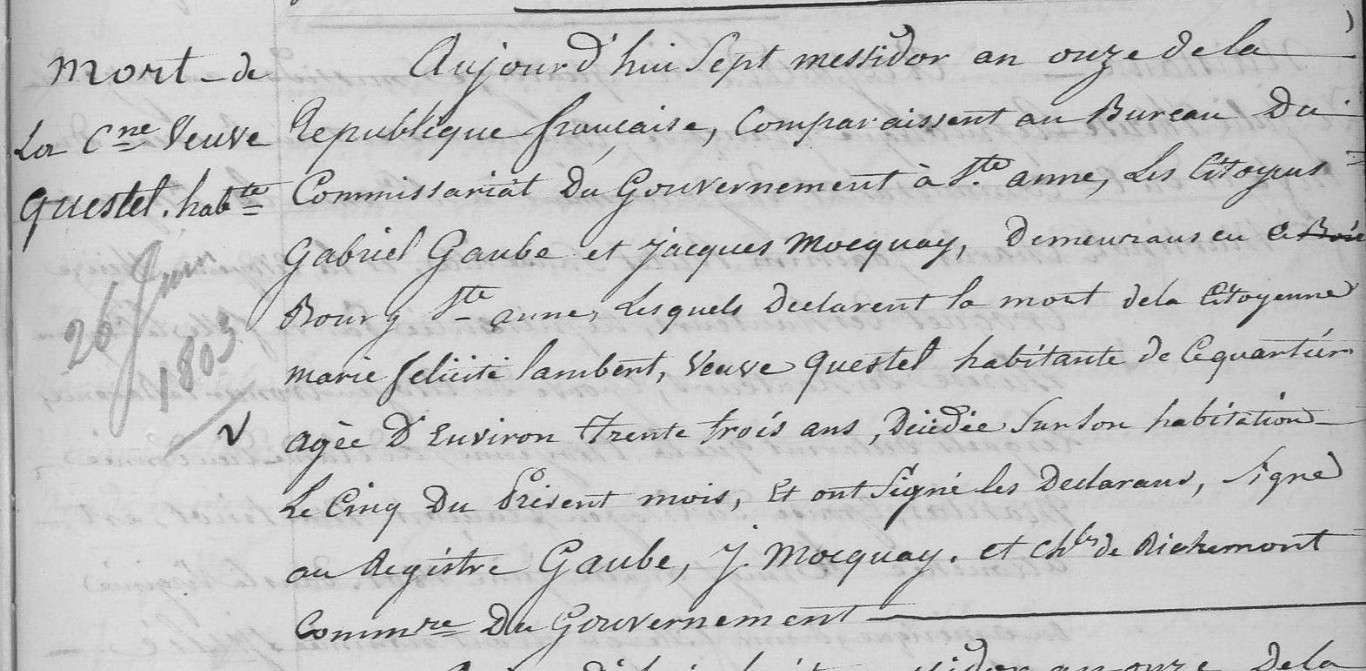 mort de
La C.ne Veuve
Questel. hab.te
26 Juin
1803
Aujourd'hui Sept messidor an onze de la
Republique française, Comparaissent au Bureau Du
Commissariat Du Gouvernement à S.te anne, Les Citoyens
Gabriel Gaube et Jacques Mocquay, Demeurans en ce
Bourg S.te anne, Lesquels Declarent la mort de la Citoyenne
marie felicité lambert, Veuve Questel habitante de Cequartier
agée D'Environ trente trois ans, Décidée Sur Son habitation
Le Cinq Du Présent mois, Et ont Signé les Declarans, Signé
au Registre Gaube, J. Mocquay. et Ch.les de Richemont
Comm.re Du Gouvernement
messidor an onze de la